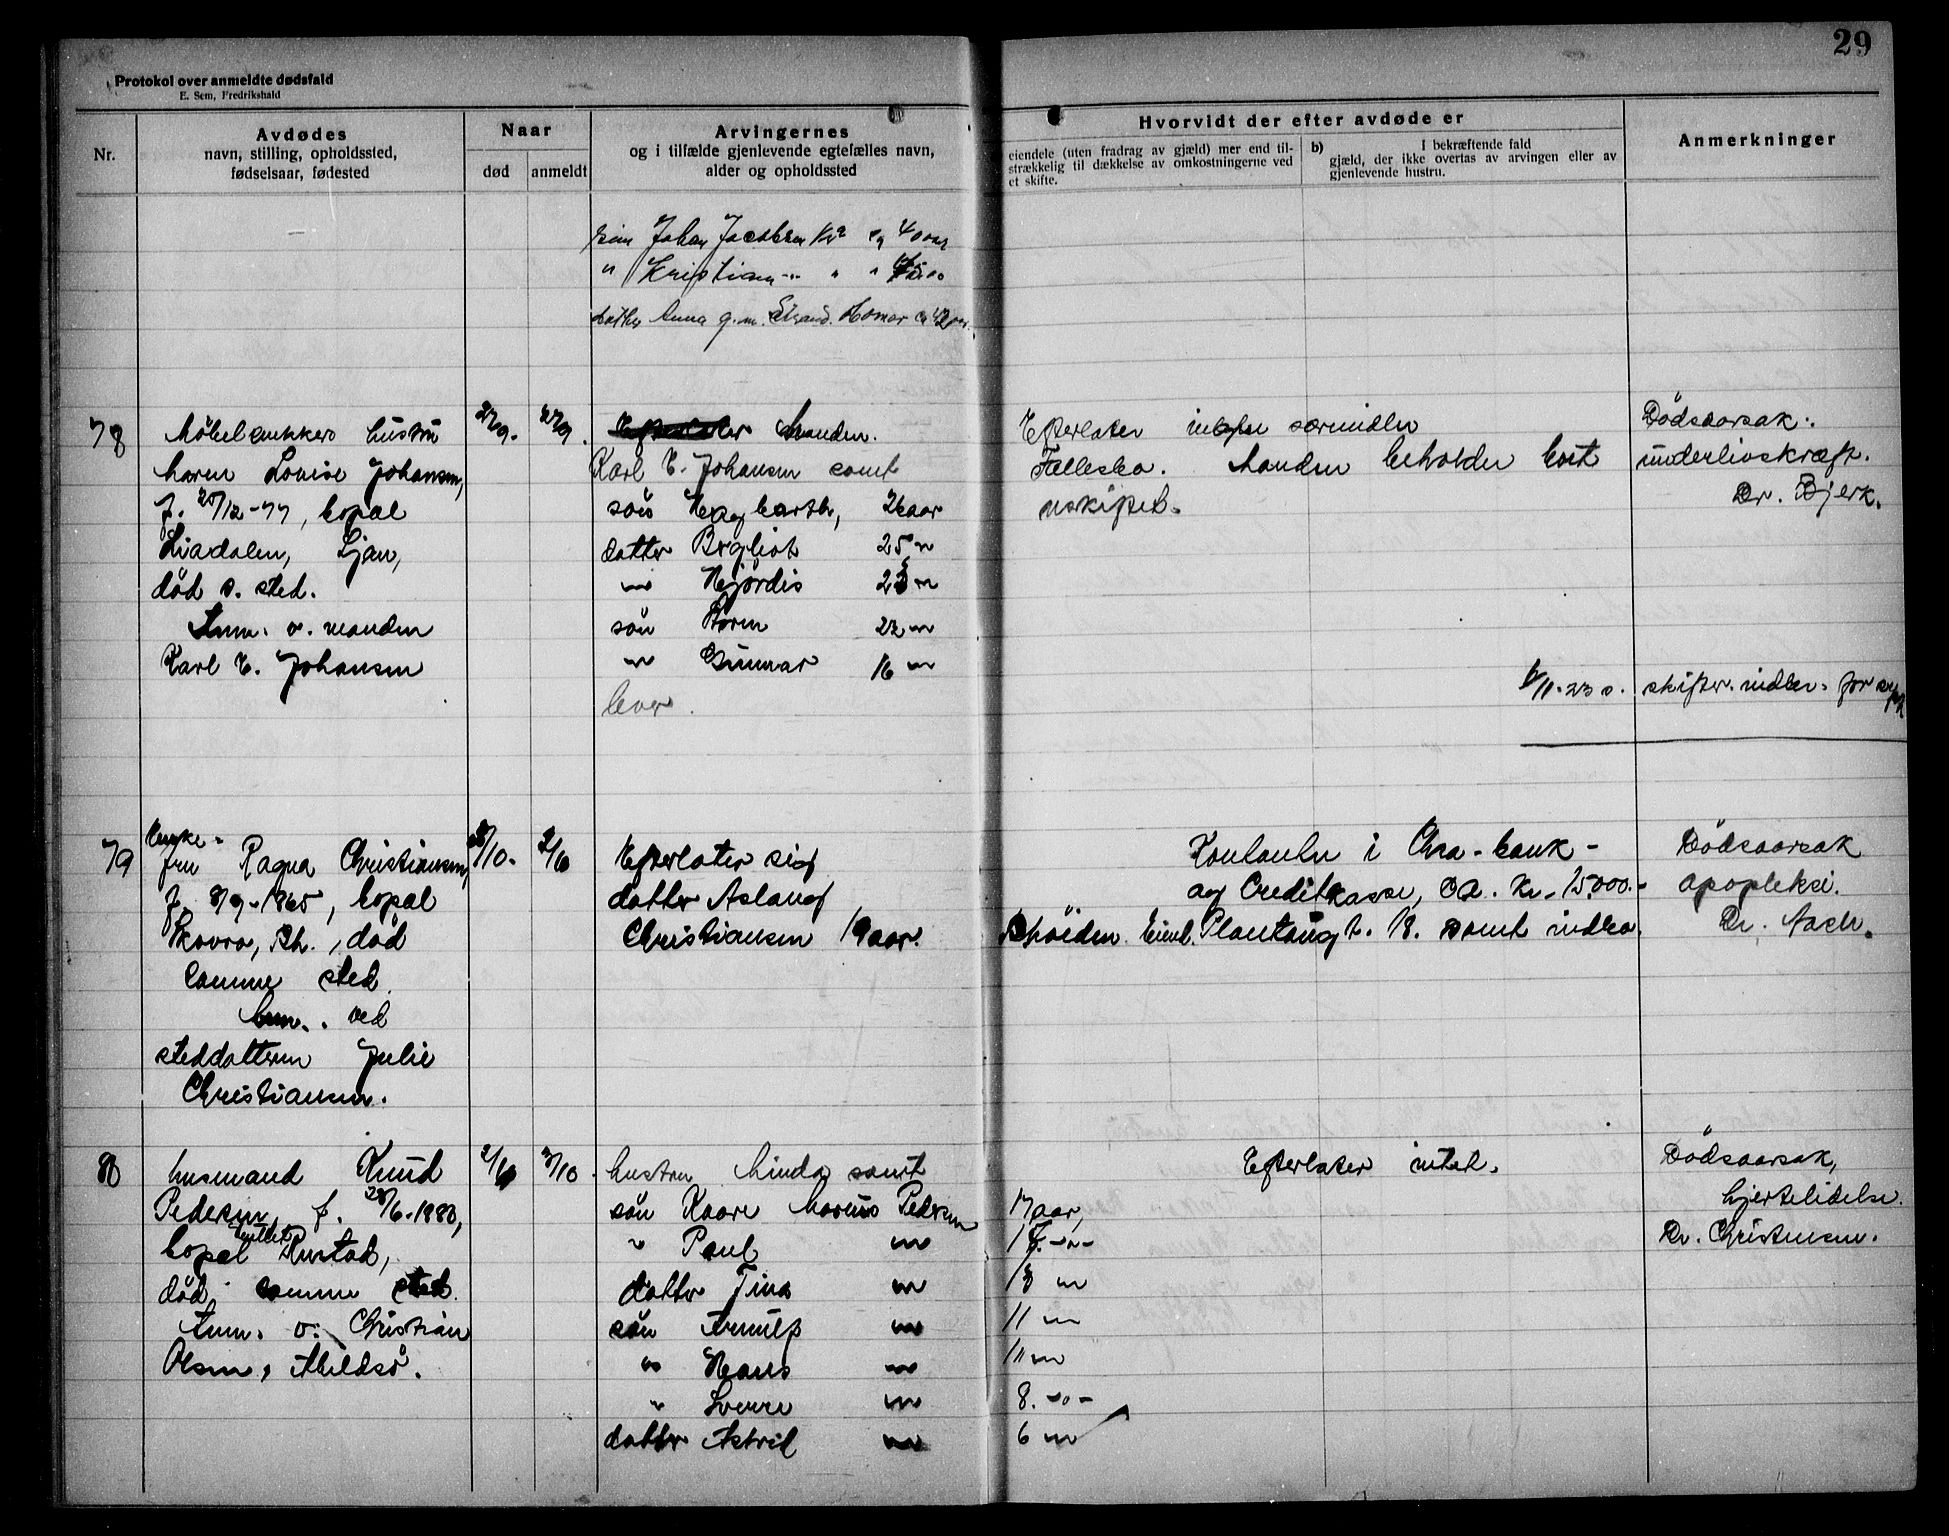 29
Protokol over anmeldte dødsfald
E. Sem, Fredrikshald
Nr.
Avdødes
navn, stilling, opholdssted,
fødselsaar, fødested
Naar
død
anmeldt
Arvingernes
og i tilfælde gjenlevende egtefælles navn,
alder og opholdssted
Hvorvidt der efter avdøde er
eiendele (uten fradrag av gjæld) mer end til-
strækkelig til dækkelse av omkostningerne ved
et skifte.
b) I bekræftende fald
gjæld, der ikke overtas av arvingen eller av
gjenlevende hustru.
Anmerkninger
Johan Jacobsen 40 aar
" Kristian " "
Anna g.m.
78
Møbelsnekker hustru
Maren Lovise Johansen,
f. 20/12-77, bopæl
Liadalen, Ljan,
død s. sted.
Anm. v. manden
Karl E. Johansen
27/9.
27/9.
Efterlater Manden.
Karl E. Johansen samt
søn Hagbarth, 26 aar
datter Bergliot 25 "
" Hjørdis 23 "
søn 22 "
" Gunnar 16 "
lever.
Efterlater intet særmidler
Fællesbo. Manden beholder boet
uskiftet.
Dødsaarsak:
underlivskræft.
Dr. Bjerk.
/11-23 s. skifter. midler. for
79
Enke-
fru Ragna Christiansen,
f. 8/9-1865, bopæl
Skovro, Bh., død
samme sted.
Anm. ved
steddatteren Julie
Christiansen.
/10.
2/10
Efterlater sig
datter Aslaug
Christiansen 19 aar.
i Chra-bank-
og Creditkasse, ca. Kr. 15.000.-
samt indbo.
Dødsaarsak
apopleksi.
Dr.
80
husmand Knud
Pedersen, f. 28/6-1880,
bopæl Rustad,
død samme sted.
Anm. v. Christian
Olsen, Abildsø.
2/10
3/10.
hustru Minda samt
søn Kaare Marius Pedersen 17 aar,
" Paul "
datter Tina " 13 "
søn Arnulf " 11 "
" Hans " 11 "
" Sverre " 8. -"-
datter Astrid " 6 "
Efterlater intet.
Dødsaarsak,
hjertelidelse.
Dr. Christensen.